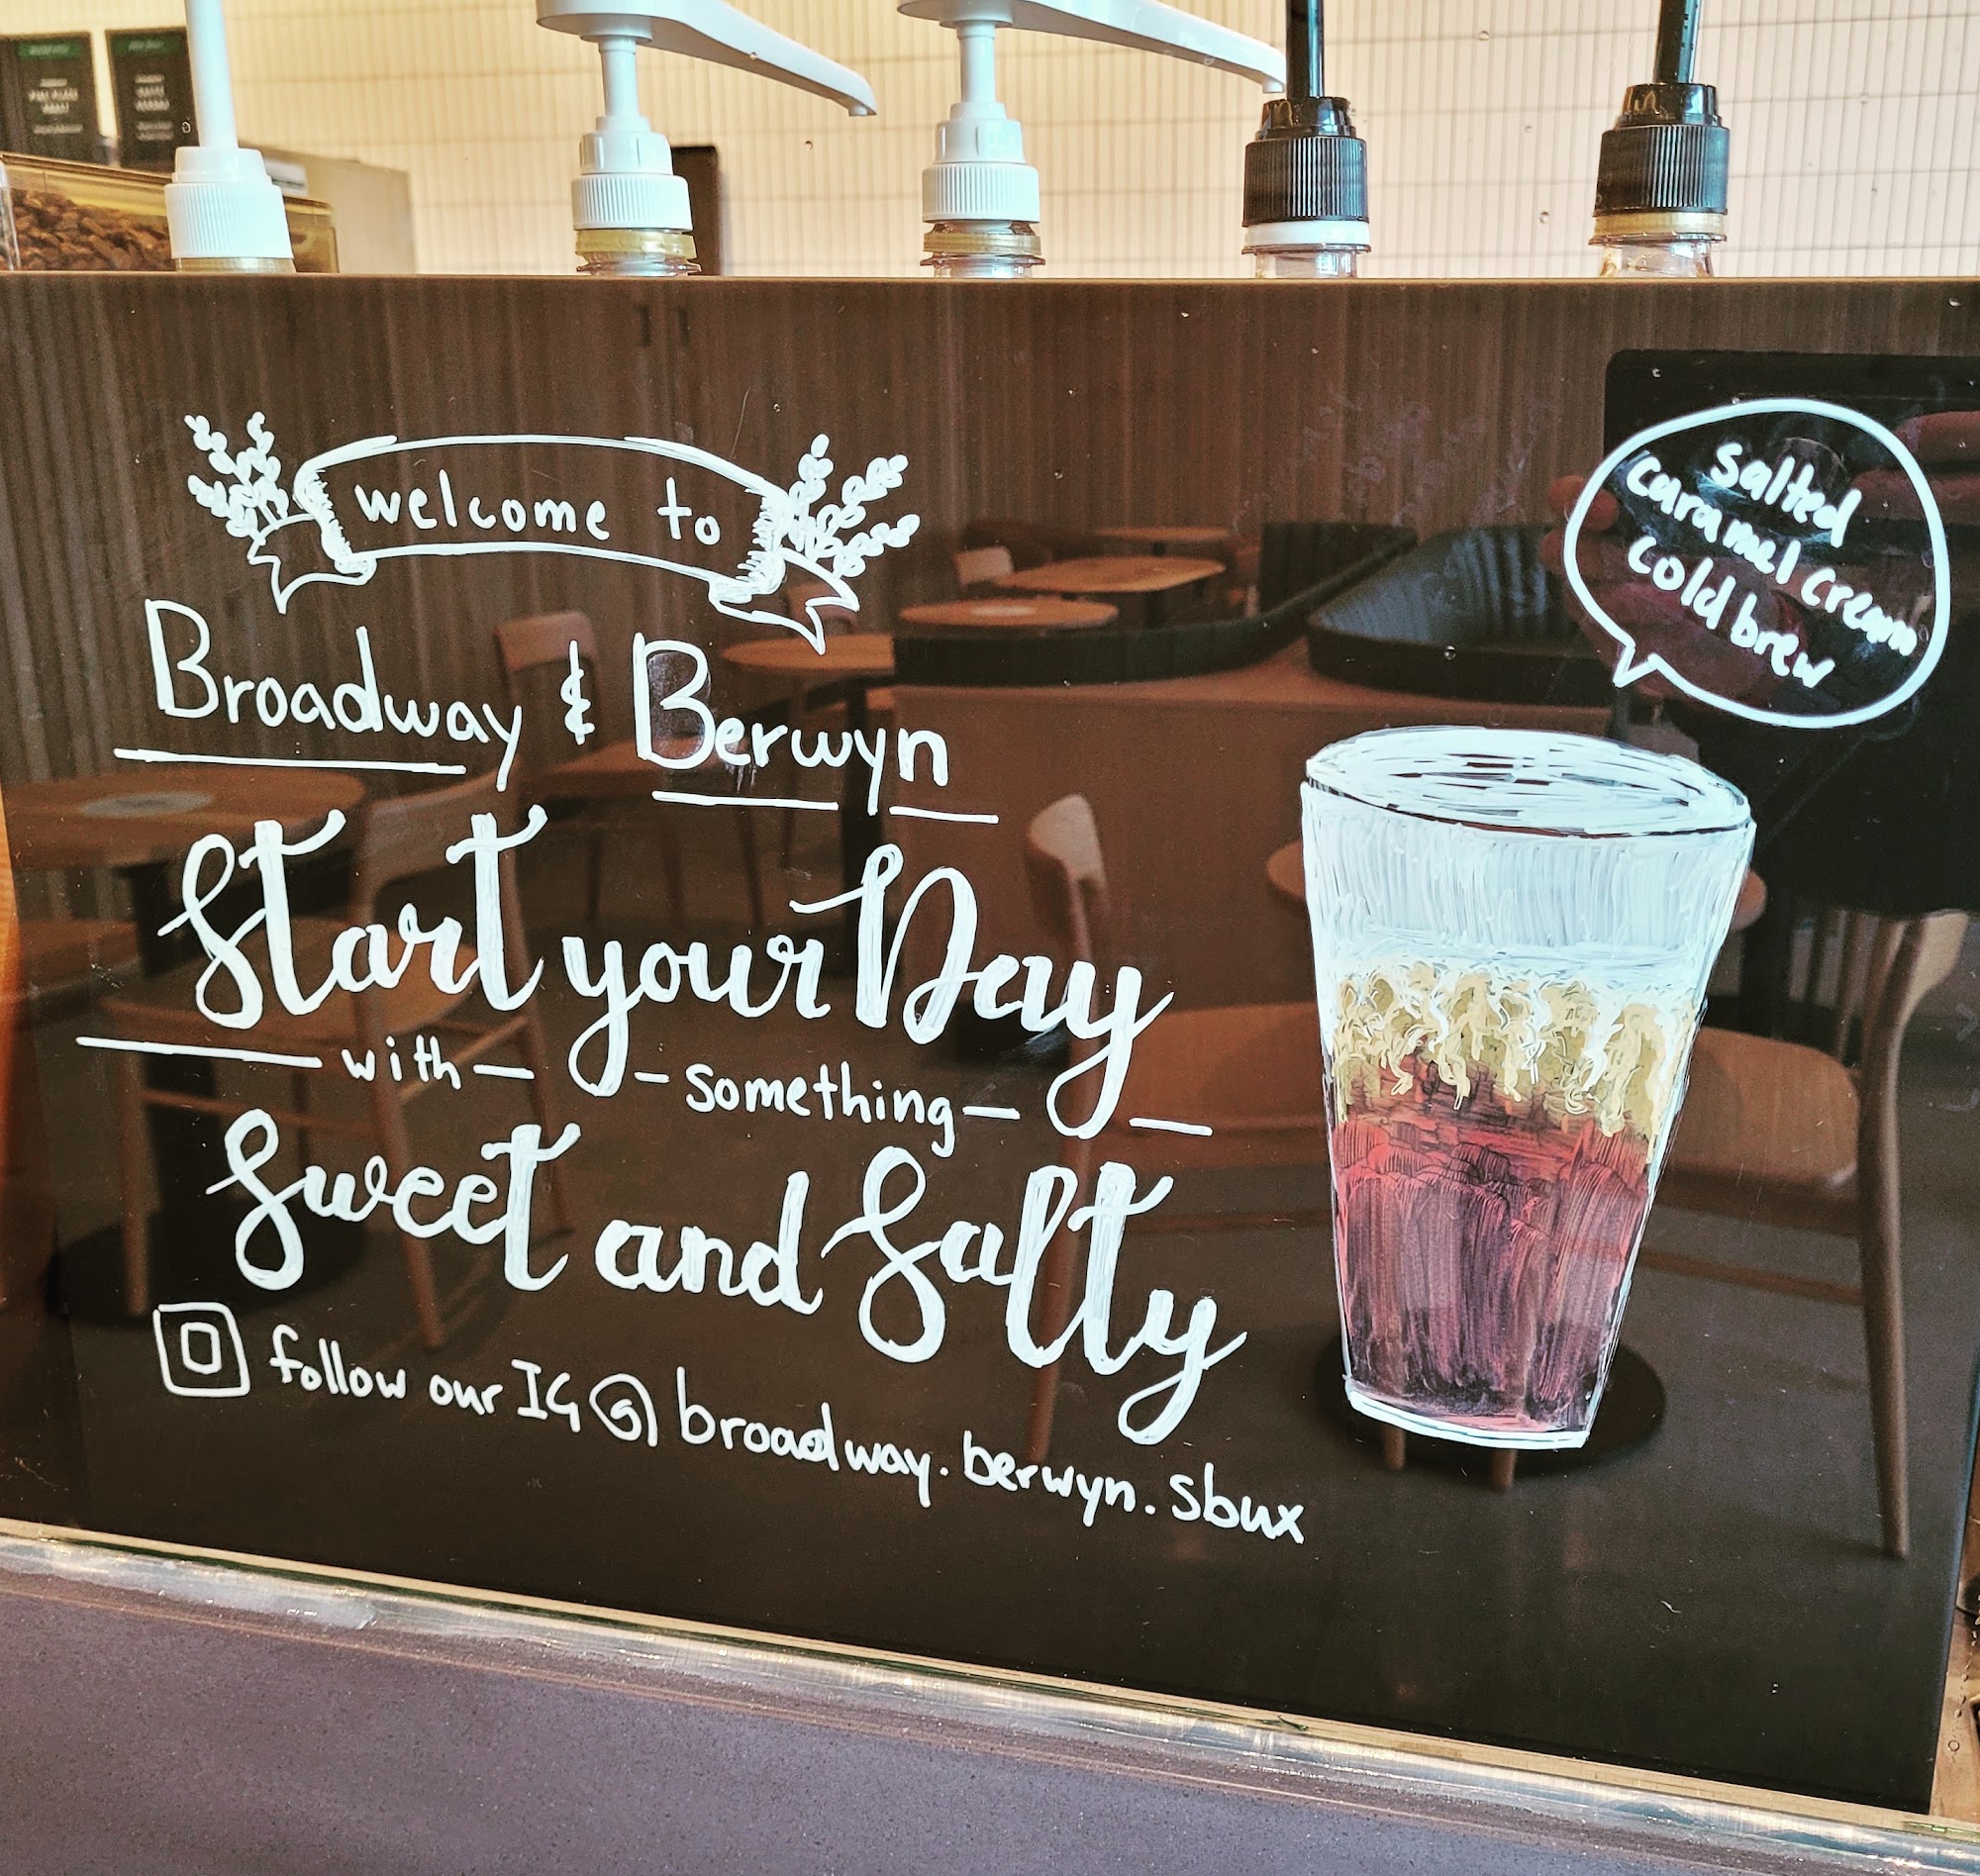 welcome to
Broadway & Berwyn
Start your Day
with something
Sweet and Salty
follow our IG @ broadway.berwyn.sbux
salted
caramel cream
cold brew